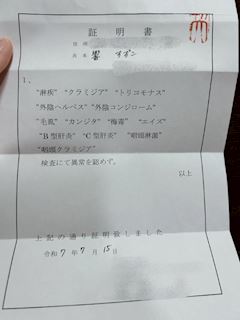 証明書
住所
氏名
1、
“淋疾” “クラミジア” “トリコモナス”
“外陰ヘルペス” “外陰コンジローム”
“毛虱” “カンジタ” “梅毒” “エイズ”
“B型肝炎” “C型肝炎” “咽頭淋菌”
“咽頭クラミジア”
検査にて異常を認めず。
以上
上記の通り証明致しました
令和7年7月15日